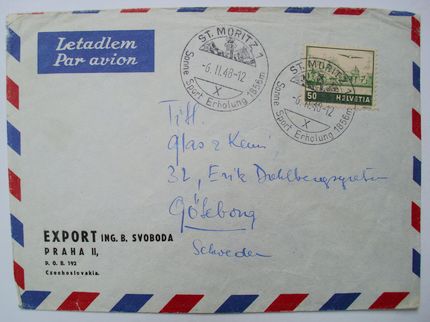 Letadlem
Par avion
ST. MORITZ 1
-6.II.48-12
X
Sonne Sport Erholung 1856m
ST. MORITZ 1
-6.II.48-12
X
Sonne Sport Erholung 1856m
50 HELVETIA
Titl.
Glas & Kemi
32, Erik Dahlbergsgatan
Göteborg
Schweden
EXPORT ING. B. SVOBODA
PRAHA II,
P. O. B. 192
Czechoslovakia.